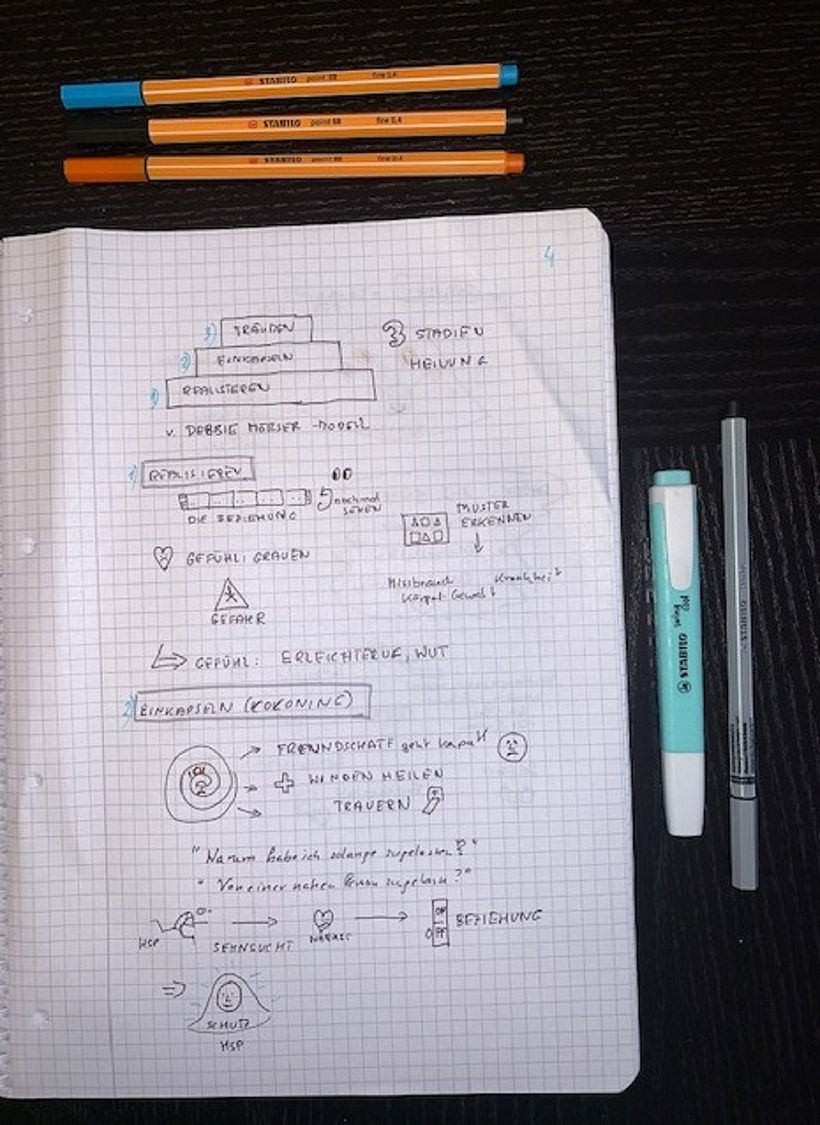 STABILO point 88 fine 0,4
STABILO point 88 fine 0,4
STABILO point 88 fine 0,4
4
3) TRÄUMEN
3 STADIEN
2) EINKAPSELN
HEILUNG
1) REALISIEREN
v. DEBBIE MERSER-MODELL
1) REALISIEREN
DIE BEZIEHUNG
nochmal
SEHEN
MUSTER
ERKENNEN
GEFÜHL: GRAUEN
Missbrauch
Krankheit
GEFAHR
GEFÜHL: ERLEICHTERUF, WUT
2) EINKAPSELN (KOKONING)
ICH
FREUNDSCHAFT geht kaputt
WUNDEN HEILEN
TRAUERN
"Warum habe ich solange zugelassen?"
"Von einer nahen Person zugelassen?"
HSP
SEHNSUCHT
ON
OFF
BEZIEHUNG
SCHUTZ
HSP
STABILO
swing
STABILO